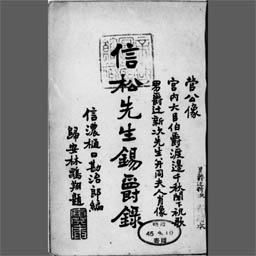 菅公像
宮内大臣伯爵渡邊千秋閣下祝歌
男爵辻新次先生并同夫人肖像
信松先生錫爵錄
信濃樋口勘治郎編
歸安林鵾翔題
45.4.10